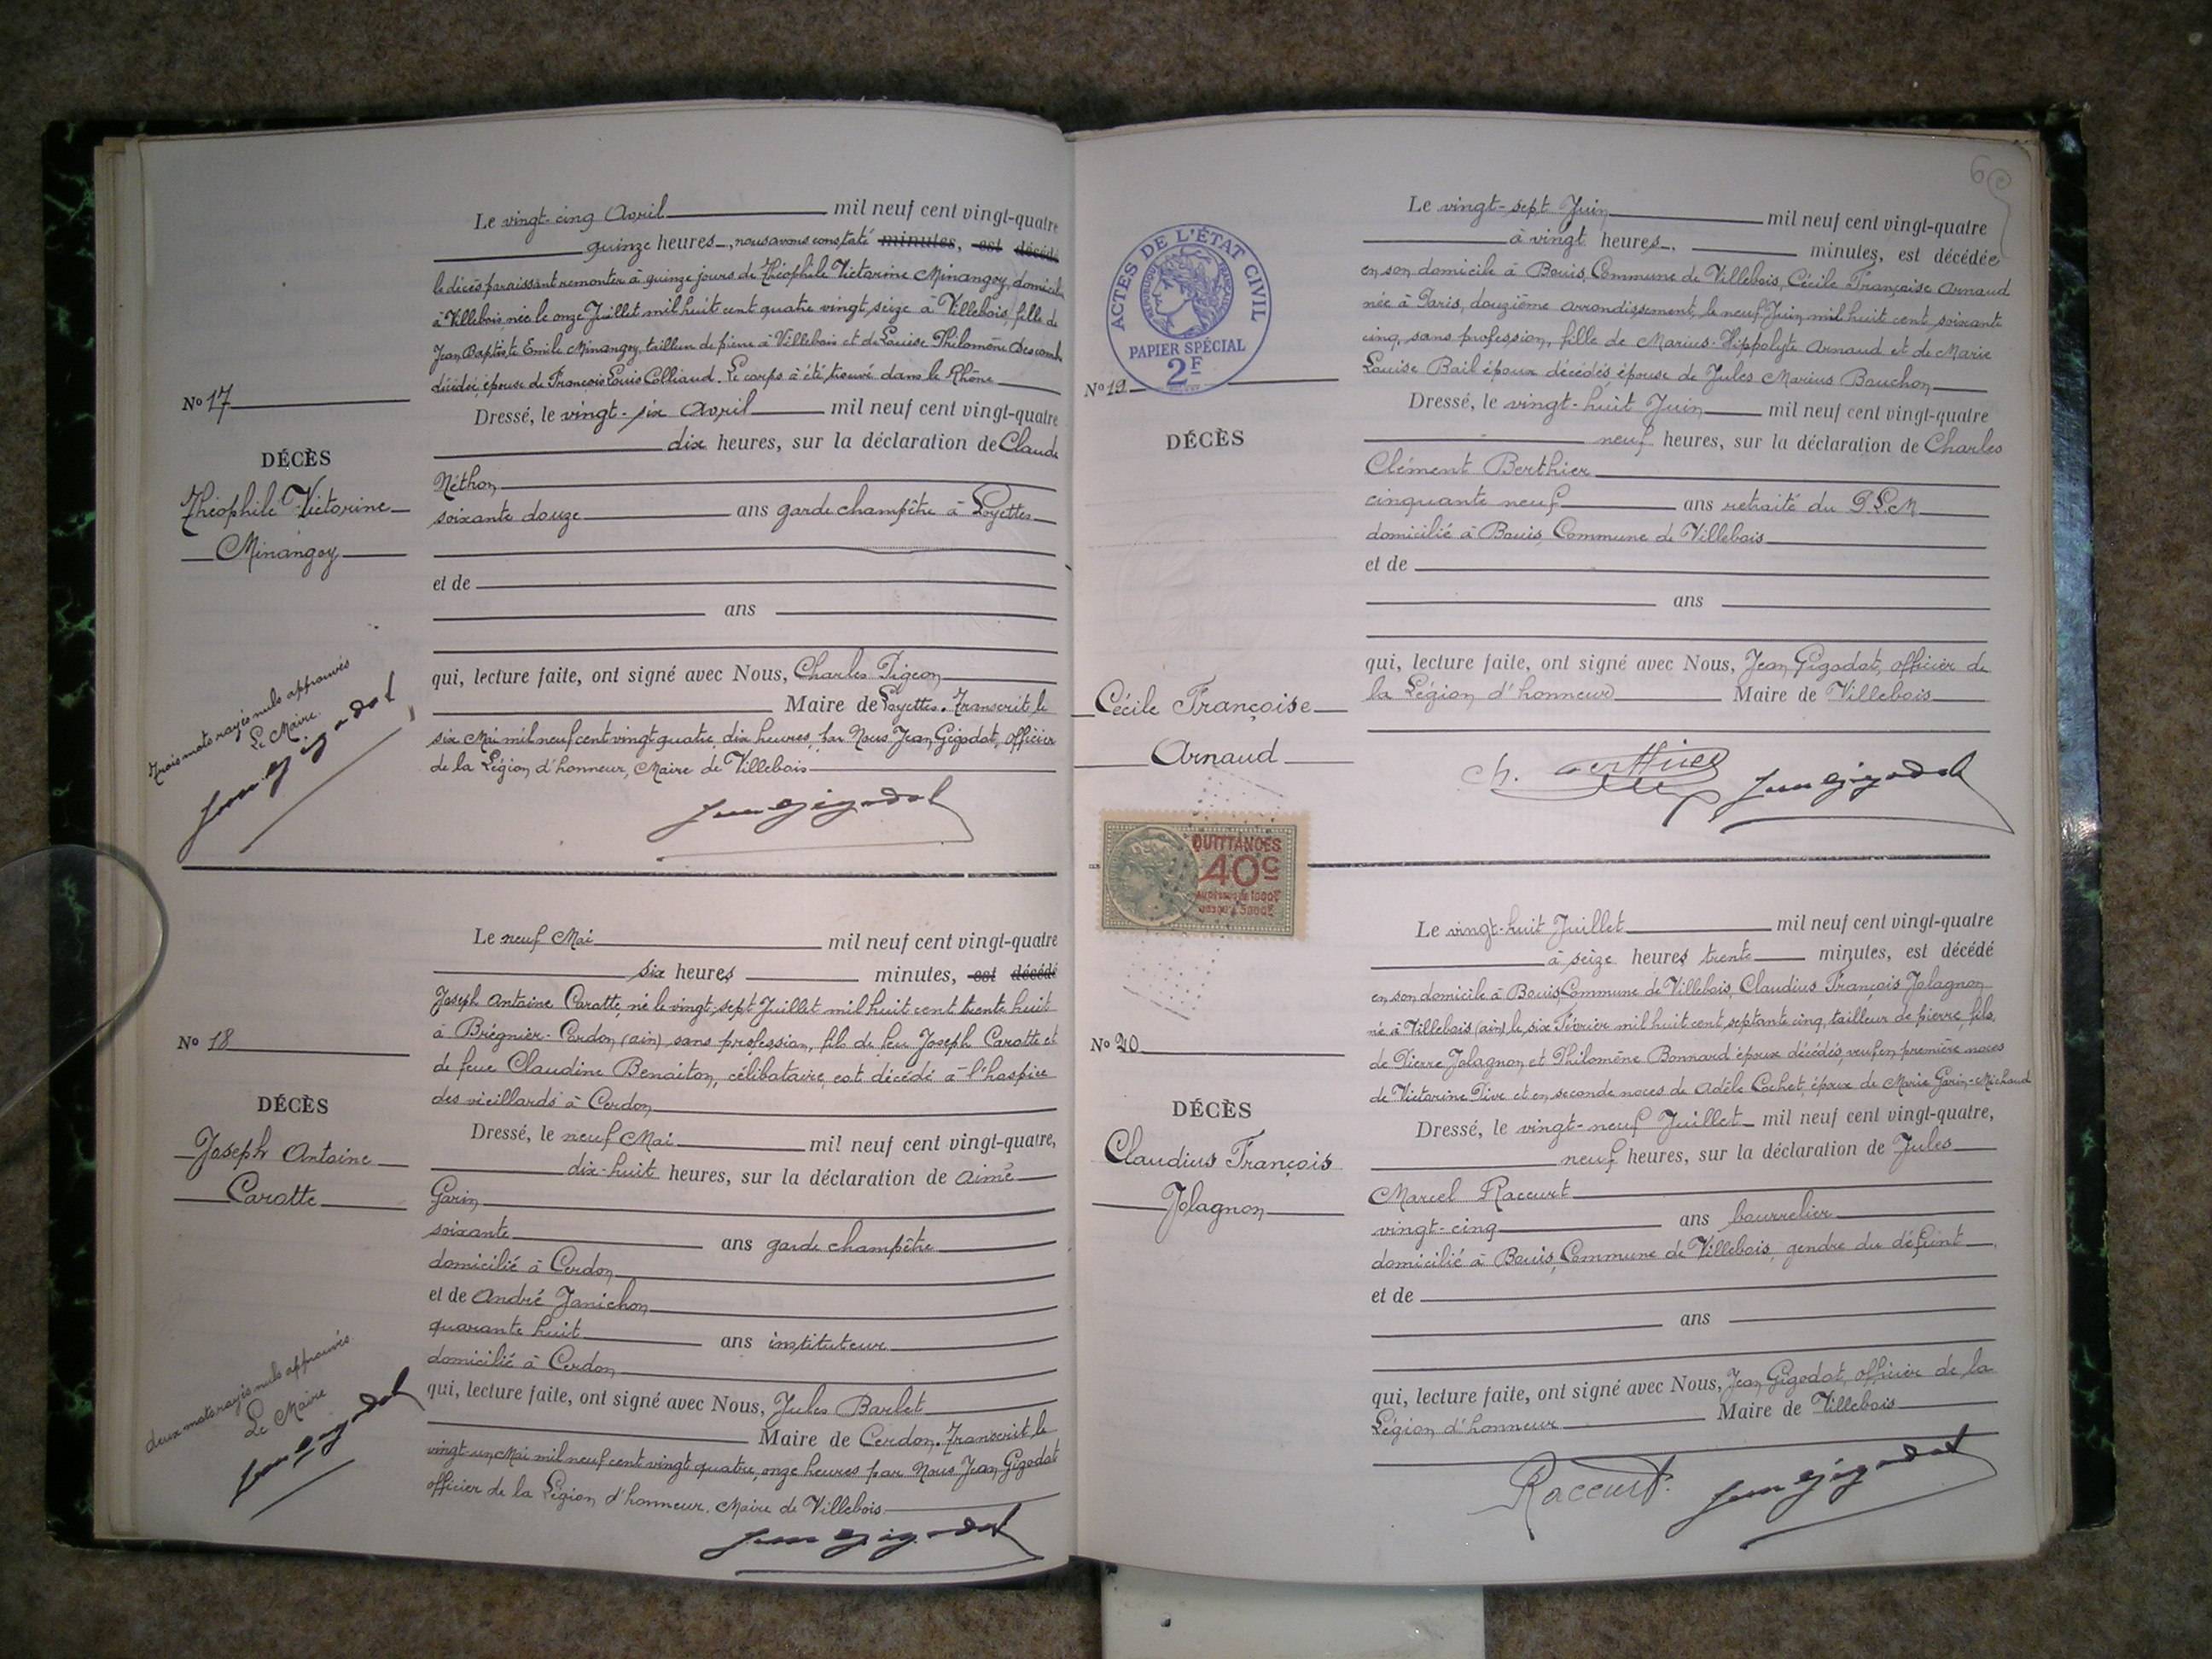 Le vingt-cinq Avril mil neuf cent vingt-quatre
quinze heures, nous avons constaté minutes, est décédé
le décès paraissant remonter à quinze jours de Théophile Victorine Minangoy, domiciliée
à Villebois née le onze Juillet mil huit cent quatre vingt seize à Villebois, fille de
Jean Baptiste Emile Minangoy, tailleur de pierre à Villebois et de Louise Philomène Descombes
décédée, épouse de François Louis Colliaud. Le corps à été trouvé dans le Rhône
No 17
Dressé, le vingt-six Avril mil neuf cent vingt-quatre
dix heures, sur la déclaration de Claude
DÉCÈS
Néthon
Théophile Victorine
soixante douze ans garde champêtre à Loyettes
Minangoy
et de
ans
qui, lecture faite, ont signé avec Nous, Charles Pigeon
Maire de Loyettes. Transcrit le
six Mai mil neuf cent vingt quatre, dix heures, par Nous Jean Gigodot, officier
de la Légion d'honneur, Maire de Villebois
Trois mots rayés nuls approuvés
Le Maire.
Jean Gigodot
Jean Gigodot
Le neuf Mai mil neuf cent vingt-quatre
six heures minutes, est décédé
Joseph Antoine Caratte, né le vingt sept Juillet mil huit cent trente huit
à Brégnier-Cordon (ain) sans profession, fils de feu Joseph Caratte et
No 18
de feue Claudine Benoiton, célibataire, est décédé à l'hospice
des vieillards à Cerdon
DÉCÈS
Dressé, le neuf Mai mil neuf cent vingt-quatre,
Joseph Antoine
dix-huit heures, sur la déclaration de aimé
Caratte
Garin
soixante ans garde champêtre
domicilié à Cerdon
et de André Janichon
quarante huit ans instituteur
domicilié à Cerdon
qui, lecture faite, ont signé avec Nous, Jules Barlet
Maire de Cerdon. Transcrit le
vingt-un Mai mil neuf cent vingt quatre, onze heures par Nous Jean Gigodot
officier de la Légion d'honneur. Maire de Villebois
deux mots rayés nuls approuvés
Le Maire
Jean Gigodot
Jean Gigodot
6
ACTES DE L'ÉTAT CIVIL
RÉPUBLIQUE FRANÇAISE
PAPIER SPÉCIAL
2F
Le vingt-sept Juin mil neuf cent vingt-quatre
à vingt heures minutes, est décédée
en son domicile à Bouis, Commune de Villebois, Cécile Françoise Arnaud
née à Paris, douzième arrondissement, le neuf Juin mil huit cent soixante
cinq, sans profession, fille de Marius-Hippolyte Arnaud et de Marie
Louise Bail époux décédés épouse de Jules Marius Bouchon
No 19
Dressé, le vingt-huit Juin mil neuf cent vingt-quatre
DÉCÈS
neuf heures, sur la déclaration de Charles
Clément Berthier
cinquante neuf ans retraité du P.L.M
domicilié à Bouis, Commune de Villebois
et de
ans
qui, lecture faite, ont signé avec Nous, Jean Gigodot, officier de
la Légion d'honneur Maire de Villebois
Cécile Françoise
Arnaud
Ch. Berthier Jean Gigodot
QUITTANCES
40c
AU-DESSUS DE 1000F
JUSQU'À 5000F
Le vingt-huit Juillet mil neuf cent vingt-quatre
à seize heures trente minutes, est décédé
en son domicile à Bouis Commune de Villebois, Claudius François Jolagnon
né à Villebois (ain) le six Février mil huit cent septante cinq, tailleur de pierre, fils
No 20
de Pierre Jolagnon et Philomène Bonnard époux décédés, veuf en première noces
de Victorine Pive et en seconde noces de Adèle Cochet, époux de Marie Garin-Michaud
DÉCÈS
Dressé, le vingt-neuf Juillet mil neuf cent vingt-quatre,
Claudius François
neuf heures, sur la déclaration de Jules
Jolagnon
Marcel Raccurt
vingt-cinq ans bourrelier
domicilié à Bouis, Commune de Villebois, gendre du défunt
et de
ans
qui, lecture faite, ont signé avec Nous, Jean Gigodot, officier de la
Légion d'honneur Maire de Villebois
Raccurt. Jean Gigodot